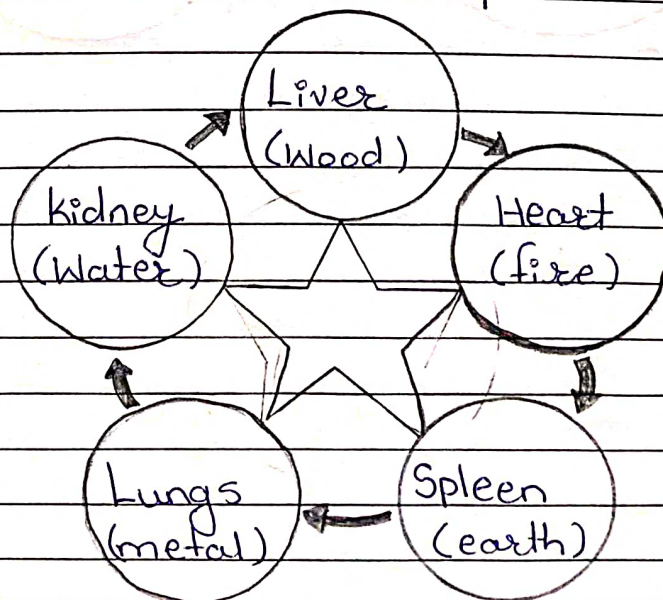 Liver
(Wood)
Heart
(fire)
Spleen
(earth)
Lungs
(metal)
kidney
(Water)